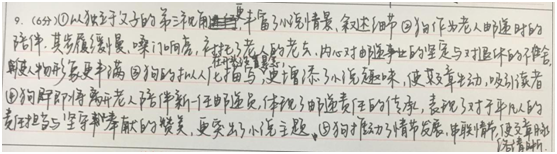 9.(6分)①以独立于父子的第三视角更丰富了小说情景、叙述细节 ②狗作为老人邮递时的
陪伴.其步履缓慢、嗓门响亮,衬托了老人的老去,内心对邮递事业的坚定与对退休的不舍.
使人物形象更丰满 ③狗的拟人化描写,更增添了小说趣味,使文章生动,吸引读者
④狗即将离开老人陪伴新一任邮递员,体现了邮递责任的传承,表现了对于平凡人的
责任担当与坚守奉献的赞美,更突出了小说主题.⑤狗推动了情节发展,串联情节,使文章